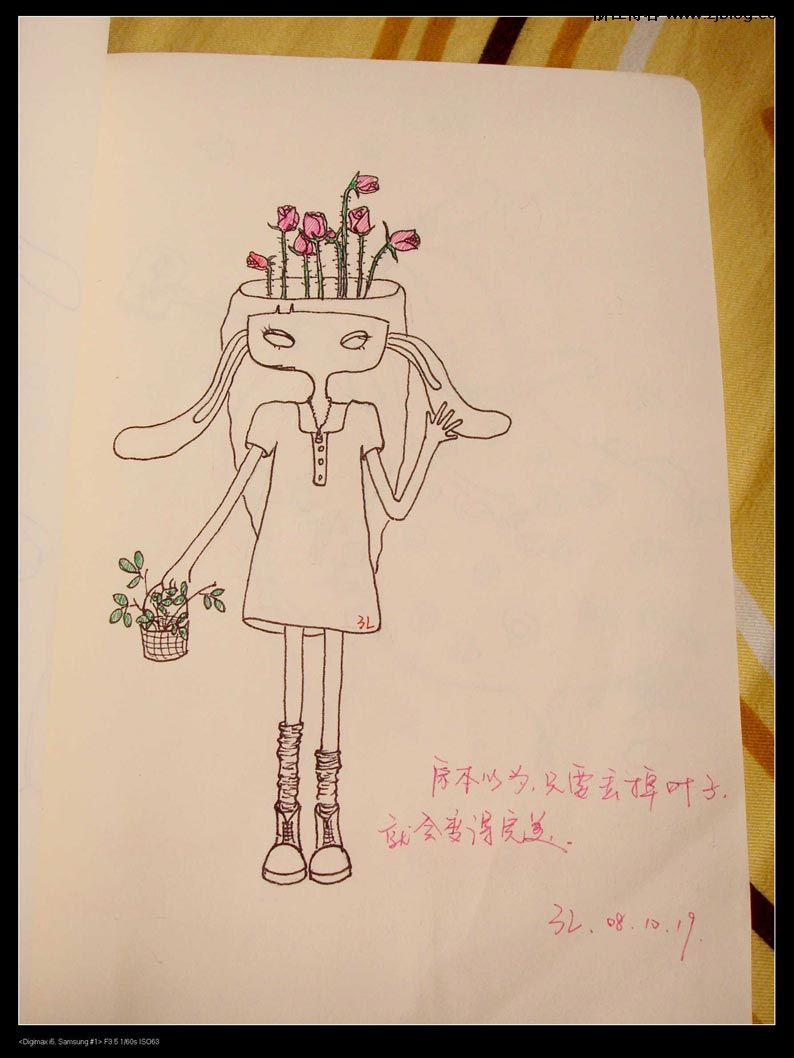 www.zjblog.co
3L
原本以为,只要去掉叶子.
就会变得完美.
3L. 08.10.19.
<Digimax i5, Samsung #1> F3.5 1/60s ISO63